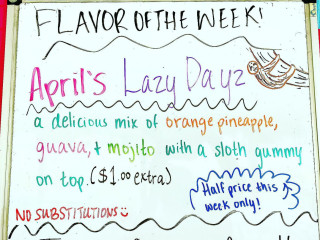 FLAVOR OF THE WEEK!
April's Lazy Dayz
a delicious mix of orange pineapple,
guava, + mojito with a sloth gummy
on top. ($1.00 extra)
Half price this
week only!
NO SUBSTITUTIONS